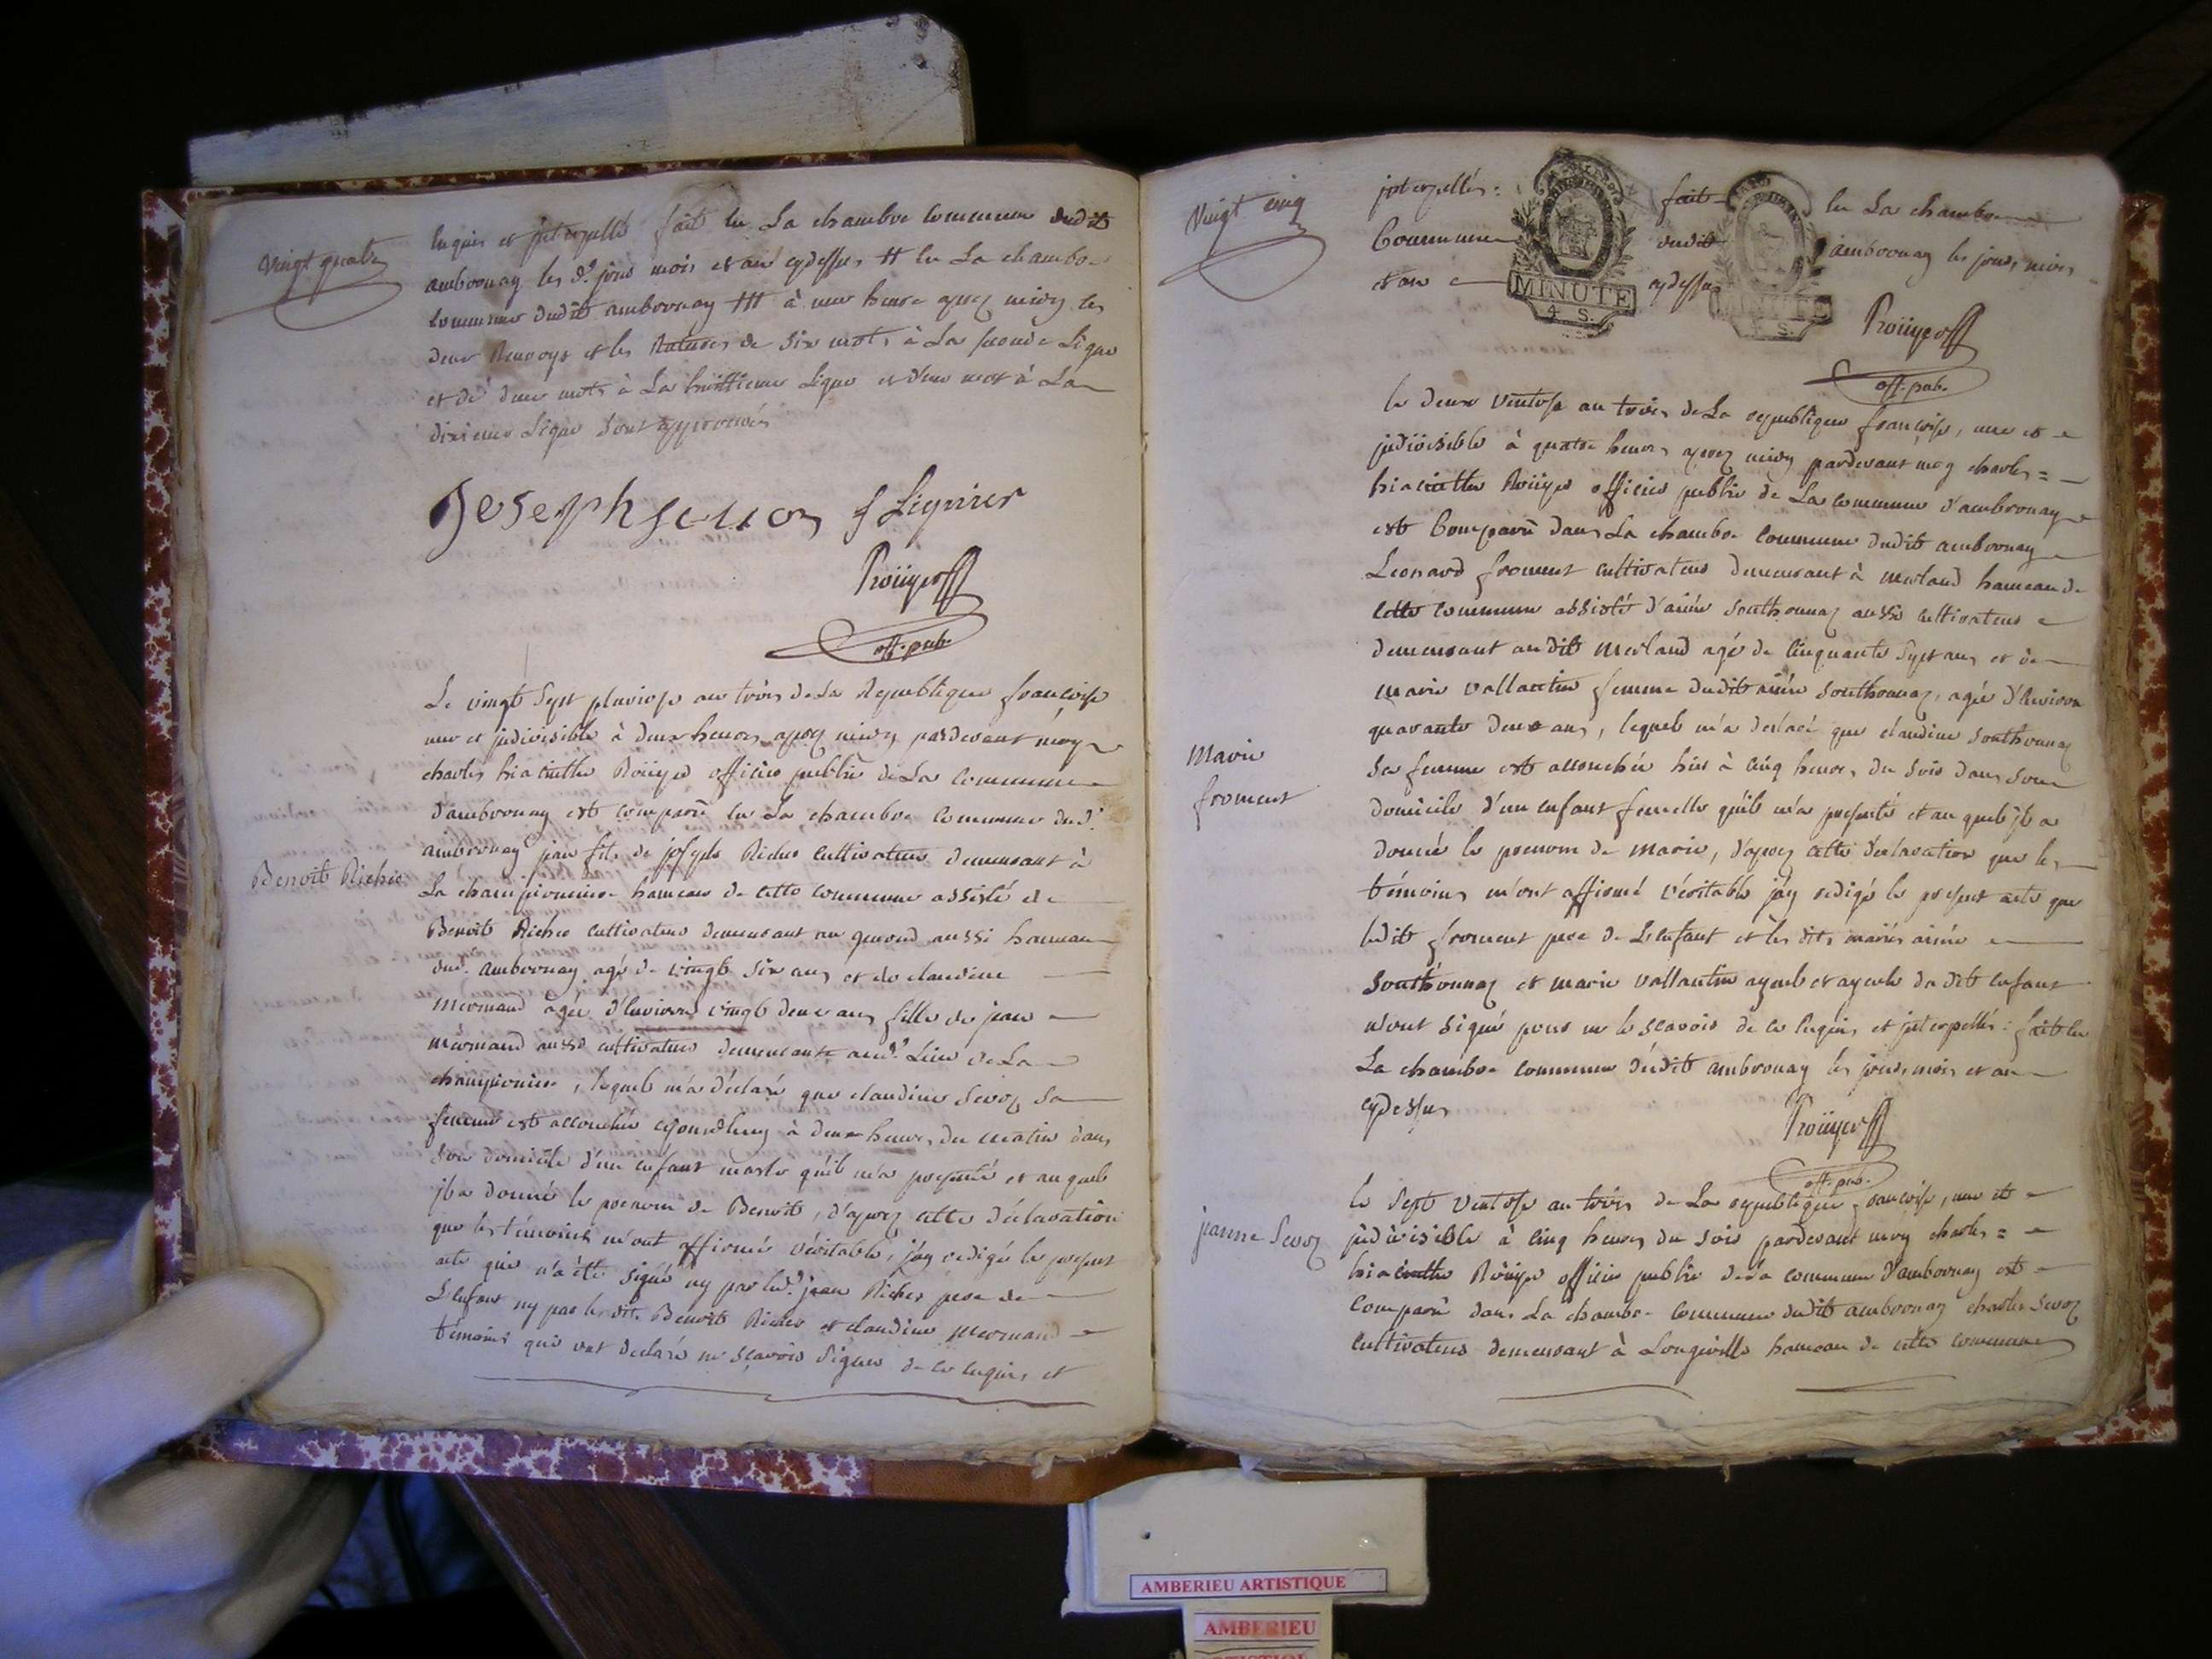 vingt quatre
enquis et jnterpellé fait en La chambre commune dudit
ambronay les d.t jour mois et an cydessus # en La chambre
commune dudit ambronay ### à une heure aprez midy les
deux Renvoys et les Ratures de Six mots à La seconde Ligne
et de deux mots à La huittieme Ligne et d'un mot à La
dixieme Ligne Sont approuvés
Joseph f Lignier
Roüyer off
off. pub.
Le vingt Sept pluviose an trois de La Republique françoise
une et jndivisible à deux heures aprez midy pardevant moy
charles hiacinthe Roüyer officier public de La commune
d'ambronay est comparu en La chambre commune dud.t
ambronay jean fils de joseph Riches cultivateur demeurant à
Benoit Riches
La championniere hameau de cette commune assisté de
Benoit Riches cultivateur demeurant au genoud aussi hameau
dud. ambronay agé de vingt six ans et de claudine
mermand agée d'environ vingt deux ans fille de jean
mermand aussi cultivateur demeurante aud.t Lieu de La
championiere, lequel m'a déclaré que claudine Sevoz sa
femme est accouchée aujourdhuy à deux heures du matin dans
son domicile d'un enfant masle qu'il m'a presenté et auquel
jl a donné le prenom de Benoit, d'aprez cette déclaration
que les témoins m'ont affirmée véritable, j'ay redigé le present
acte qui n'a été signé ny par led.t jean Riches pere de
L'enfant ny par les dits Benoit Riches et claudine mermand
témoins qui ont declaré ne sçavoir signer de ce enquis et
Vingt cinq
jnterpellés: fait en La chambre
Commune dudit ambronay les jour, mois
et an cydessus
MINUTE
4 S.
MINUTE
4 S.
Roüyer off
off. pub.
le deux Ventose an trois de La republique françoise, une et
jndivisible à quatre heures aprez midy pardevant moy charles =
hiacinthe Roüyer officier public de La commune d'ambronay
est Comparu dans La chambre commune dudit ambronay
Leonard froment cultivateur demeurant à merland hameau de
cette commune assisté d'aimé Southonnaz aussi cultivateur
demeurant audit merland agé de cinquante Sept ans et de
marie vallantin femme dudit aimé Southonnaz, agée d'environ
quarante deux ans, lequel m'a declaré que claudine Southonnaz
Marie
froment
sa femme est accouchée hier à cinq heures du soir dans son
domicile d'un enfant femelle qu'il m'a presenté et auquel jl a
donné le prenom de marie, d'aprez cette declaration que les
témoins m'ont affirmé véritable j'ay redigé le present acte que
ledit froment pere de L'enfant et les dits mariés aimé
Southonnaz et marie vallantin ayeul et ayeule du dit enfant
n'ont signé pour ne le sçavoir de ce enquis et jnterpellés: fait en
La chambre commune dudit ambronay les jour, mois et an
cydessus
Roüyer off
off. pub.
le Sept Ventose an trois de La republique françoise, une et
jeanne Sevoz
jndivisible à cinq heures du soir pardevant moy charles =
hiacinthe Roüyer officier public de La commune d'ambronay est
comparu dans La chambre commune dudit ambronay charles Sevoz
cultivateur demeurant à Longeville hameau de cette commune
AMBERIEU ARTISTIQUE
AMBERIEU
ARTISTIQUE